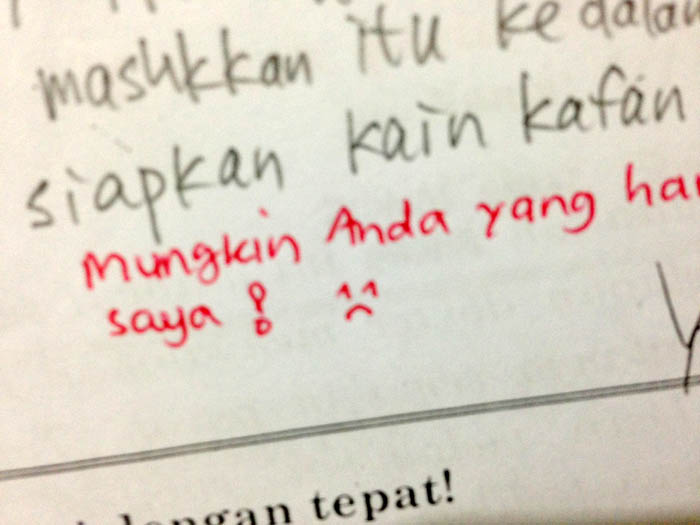 mashkkan itu kedalam
siapkan kain kafan
Mungkin Anda yang ha
saya!
dengan tepat!